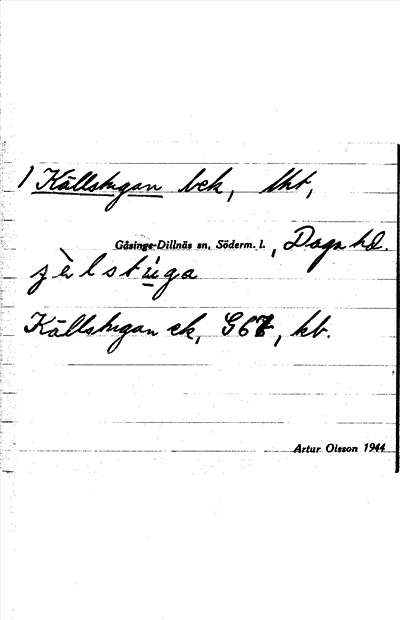 1 Källstugan bek, lht,
Gåsinge-Dillnäs sn, Söderm. l., Daga hd.
jèlstu̱ga
Källstugan ek, G67, kb.
Artur Olsson 1944